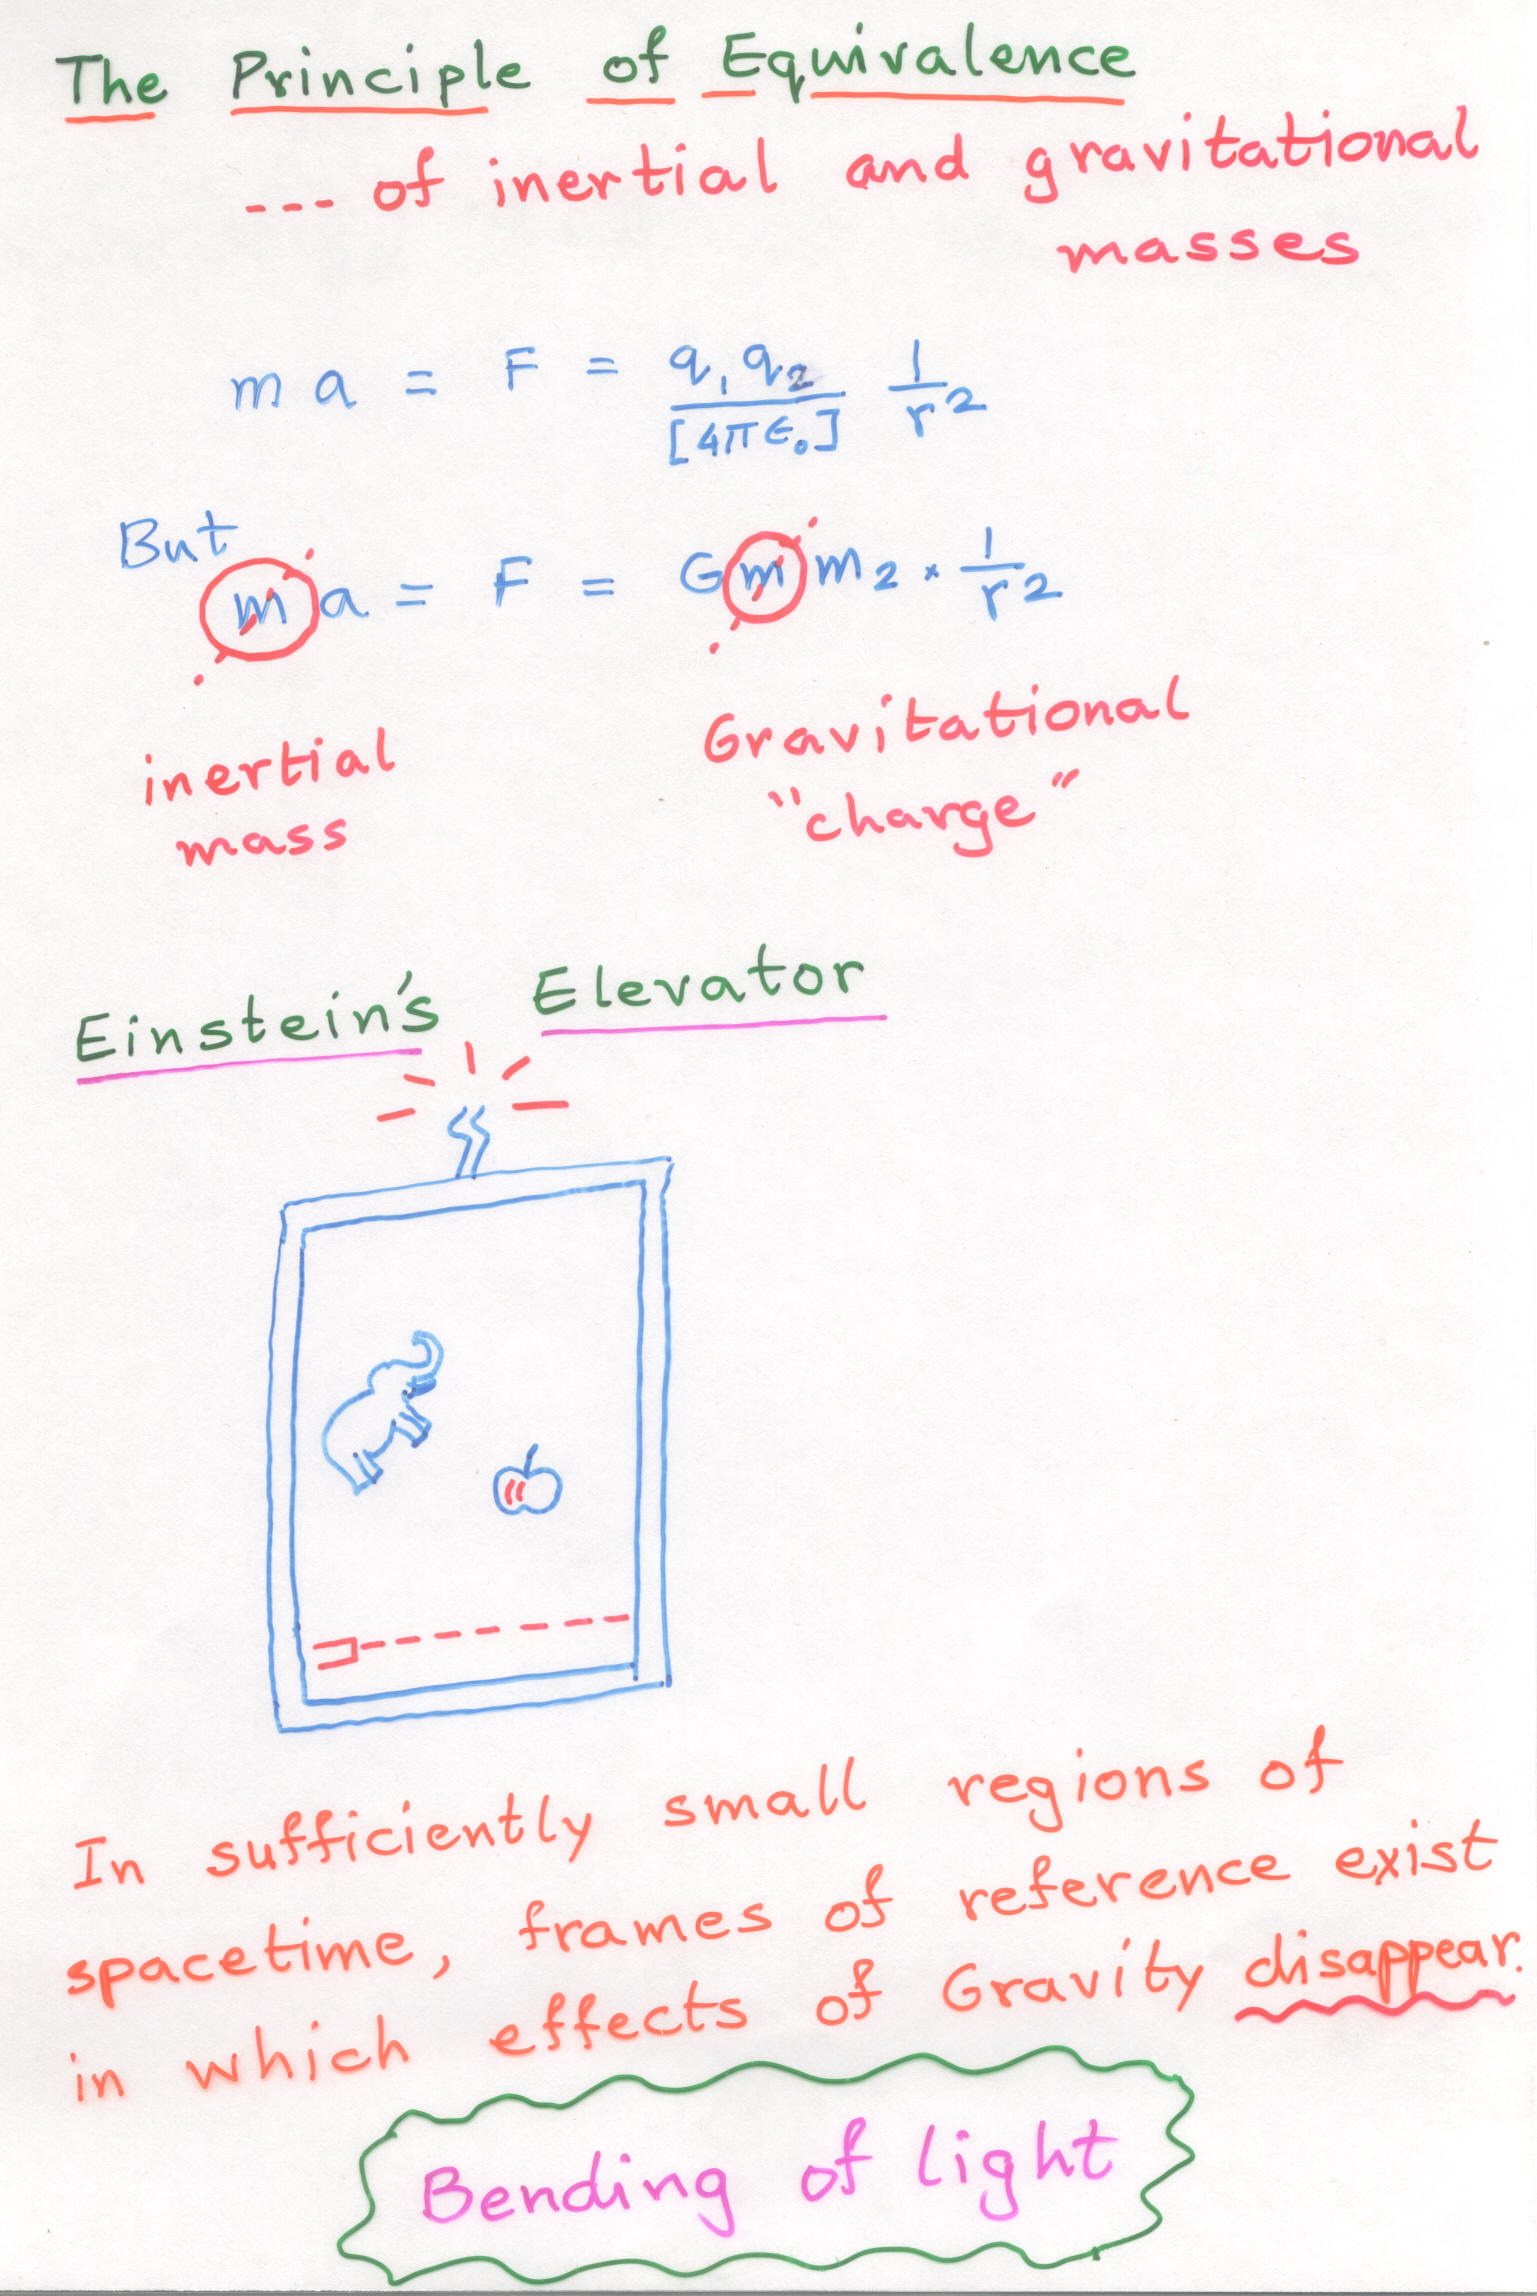 The Principle of Equivalence
--- of inertial and gravitational
masses
m a = F = q₁q₂/[4πε₀] 1/r²
But
m a = F = G m m₂ × 1/r²
inertial
mass
Gravitational
"charge"
Einstein's Elevator
In sufficiently small regions of
spacetime, frames of reference exist
in which effects of Gravity disappear.
Bending of light